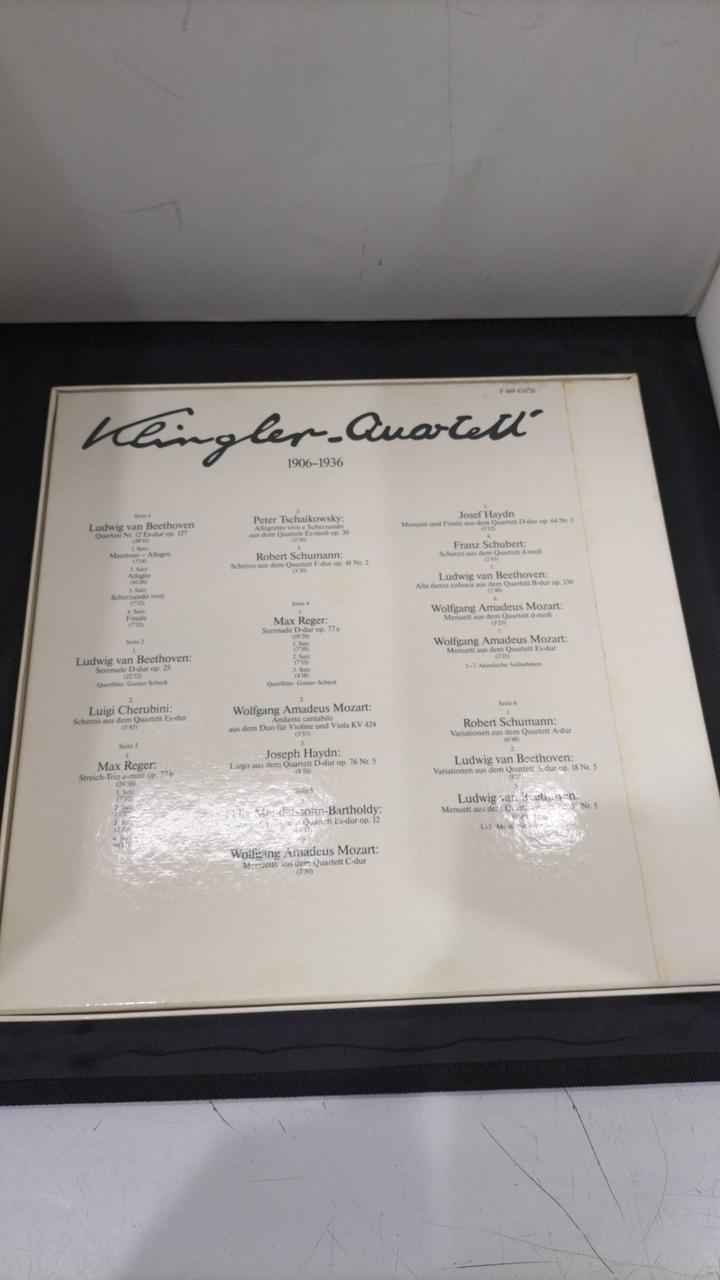 F 669 424/26
Klingler-Quartett
1906–1936
Seite 1
Ludwig van Beethoven
Quartett Nr. 12 Es-dur op. 127
1. Satz
Maestoso – Allegro
(7'14)
2. Satz
Adagio
3. Satz
Scherzando vivo
(7'12)
4. Satz
Finale
Seite 2
1.
Ludwig van Beethoven:
Serenade D-dur op. 25
(22'52)
Querflöte: Gustav Scheck
2.
Luigi Cherubini:
Scherzo aus dem Quartett Es-dur
(5'45)
Seite 3
1.
Max Reger:
Streich-Trio a-moll op. 77b
1. Satz
2.
Peter Tschaikowsky:
Allegretto vivo e Scherzando
aus dem Quartett Es-moll op. 30
3.
Robert Schumann:
Scherzo aus dem Quartett F-dur op. 41 Nr. 2
Seite 4
1.
Max Reger:
Serenade D-dur op. 77a
1. Satz
2. Satz
3. Satz
Querflöte: Gustav Scheck
2.
Wolfgang Amadeus Mozart:
Andante cantabile
aus dem Duo für Violine und Viola KV 424
3.
Joseph Haydn:
Largo aus dem Quartett D-dur op. 76 Nr. 5
Seite 5
Mendelssohn-Bartholdy:
Quartett Es-dur op. 12
Wolfgang Amadeus Mozart:
Menuetto aus dem Quartett C-dur
(3'50)
3.
Josef Haydn
Menuett und Finale aus dem Quartett D-dur op. 64 Nr. 5
4.
Franz Schubert:
Scherzo aus dem Quartett d-moll
5.
Ludwig van Beethoven:
Alla danza tedesca aus dem Quartett B-dur op. 130
6.
Wolfgang Amadeus Mozart:
Menuett aus dem Quartett d-moll
7.
Wolfgang Amadeus Mozart:
Menuett aus dem Quartett Es-dur
1.–7. Akustische Aufnahmen
Seite 6
1.
Robert Schumann:
Variationen aus dem Quartett A-dur
(6'48)
2.
Ludwig van Beethoven:
Variationen aus dem Quartett A-dur op. 18 Nr. 5
Ludwig van Beethoven:
Menuett aus dem Nr. 5